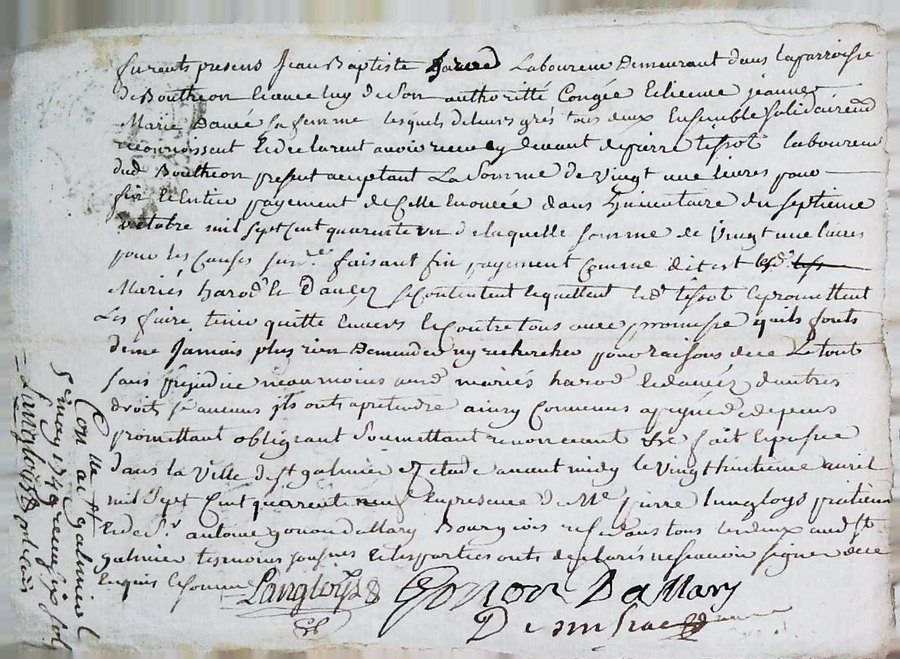 furents presens Jean Baptiste harod Laboureur Demeurant dans laparroisse
de Bouthéon Lequel de son authoritté Congée Licence jeanne
Marie Dancé sa femme lesquels deleurs grés tous deux Ensemble Solidairemd
reconnoissant Et declarent avoir receu cy devant de pierre tissot laboureur
dud Bouthéon present acceptant La Somme de Vingt une livres pour
fin Et Entier payement de Celle Enoncée dans L'inventaire du septieme
octobre mil sept Cent quarente un de laquelle somme de Vingt une livres
pour les Causes susd.es faisant fin payement Comme dit est lesd.
Mariés harod Et Dancéz se Contentent Et quittent led. tissot Et promettent
Les faire tenir quitte Envers Et Contre tous avec promesse quils fonts
deme Jamais plus rien Demender ny rechercher pour raisons de ce Le tout
sans préjudice neaumoins aud. mariés harod Et dancéz dautres
droits sy aucuns jls onts apretendre ainsy Convenus a peyne de depens
promettant obligeant Soumettant renonceant &c fait Et passé
dans la Ville de st galmier Et Etude avant midy le Vingt huitieme avril
mil Sept Cent quarrente neuf En presence de Me pierre langloys praticien
Et de Sr. antoine gonon daMary Bourgeois residants tous les deux aud. st
galmier temoins Sousnés Et les parties onts declarés ne scavoir signer de ce
Enquis Et Sommés Langloys Gonon DaMary
Con.lle a st galmier le
5 may 1749 receu six sols
Langloys